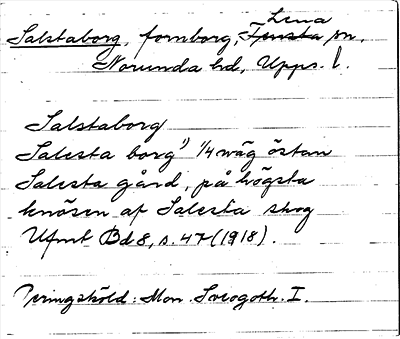 Lena
Salstaborg, fornborg, Tensta sn.
Norunda hd, Upps. l.
Salstaborg
Salesta borg" 1/4 wäg östan
Salesta gård, på högsta
knösen af Salesta skog
Ufmt Bd 8, s. 47 (1918).
Peringsköld: Mon. Sveogoth. I.